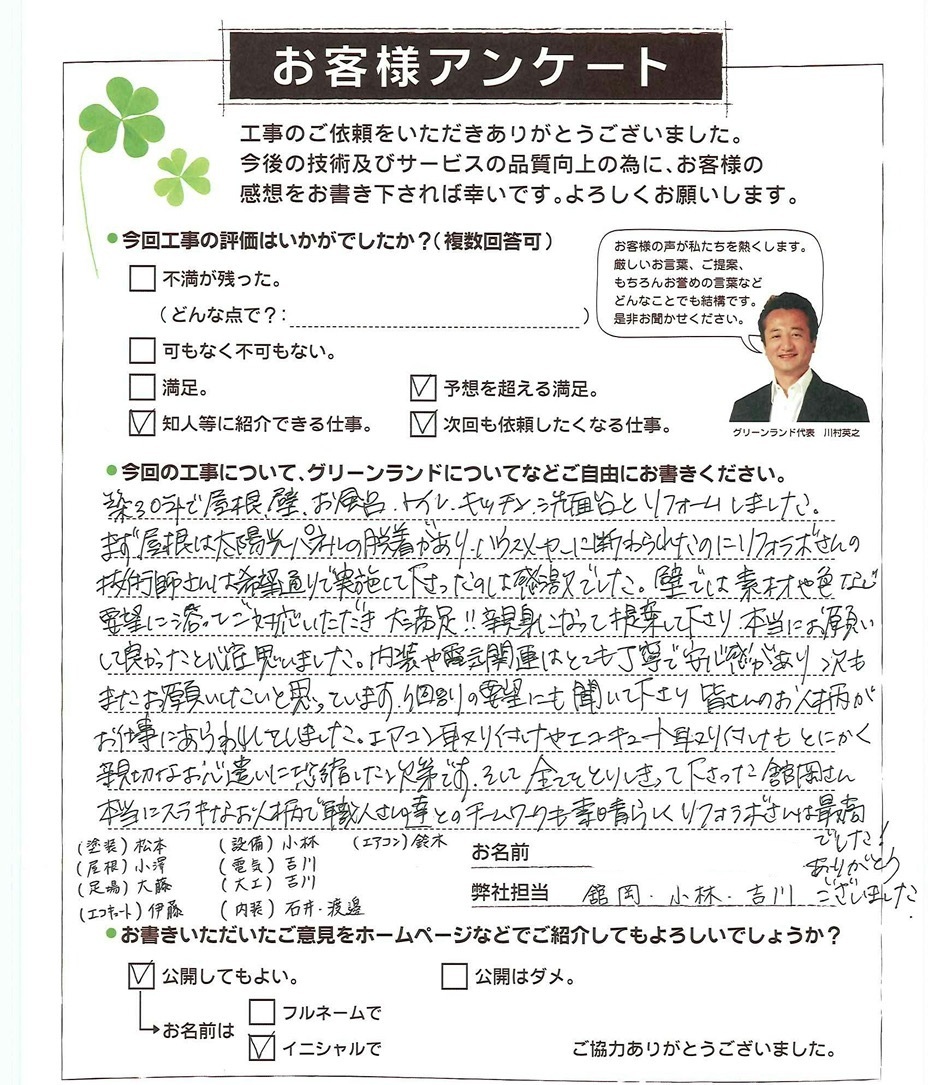 お客様アンケート
工事のご依頼をいただきありがとうございました。
今後の技術及びサービスの品質向上の為に、お客様の
感想をお書き下されば幸いです。よろしくお願いします。
●今回工事の評価はいかがでしたか？（複数回答可）
不満が残った。
（どんな点で？：　　　　）
可もなく不可もない。
満足。
予想を超える満足。
知人等に紹介できる仕事。
次回も依頼したくなる仕事。
お客様の声が私たちを熱くします。
厳しいお言葉、ご提案、
もちろんお誉めの言葉など
どんなことでも結構です。
是非お聞かせください。
グリーンランド代表　川村英之
●今回の工事について、グリーンランドについてなどご自由にお書きください。
築30年で屋根、壁、お風呂、トイレ、キッチン、洗面台とリフォームしました。
まず屋根は太陽光パネルの脱着があり、ハウスメーカーに断わられたのにリフォラボさんの
技術師さんは希望通りで実施して下さったのは感激でした。壁では素材や色など
要望に添ってご対応いただき大満足!!親身になって提案して下さり、本当にお願い
して良かったと心底思いました。内装や電気関連はとても丁寧で安心感があり、次も
またお願いしたいと思っています。個別の要望にも聞いて下さり皆さんのお人柄が
お仕事にあらわれてしました。エアコン取り付けやエコキュート取り付けもとにかく
親切なお心遣いに恐縮した次第です。そして全てをとりしきって下さった舘岡さん
本当にステキなお人柄で職人さん達とのチームワークも素晴らしくリフォラボさんは最高
でした！
ありがとう
ございました
（塗装）松本　（設備）小林　（エアコン）鈴木
（屋根）小澤　（電気）吉川
（足場）大藤　（大工）吉川
（エコキュート）伊藤　（内装）石井・渡邊
お名前
弊社担当　舘岡・小林・吉川
●お書きいただいたご意見をホームページなどでご紹介してもよろしいでしょうか？
公開してもよい。
公開はダメ。
お名前は
フルネームで
イニシャルで
ご協力ありがとうございました。